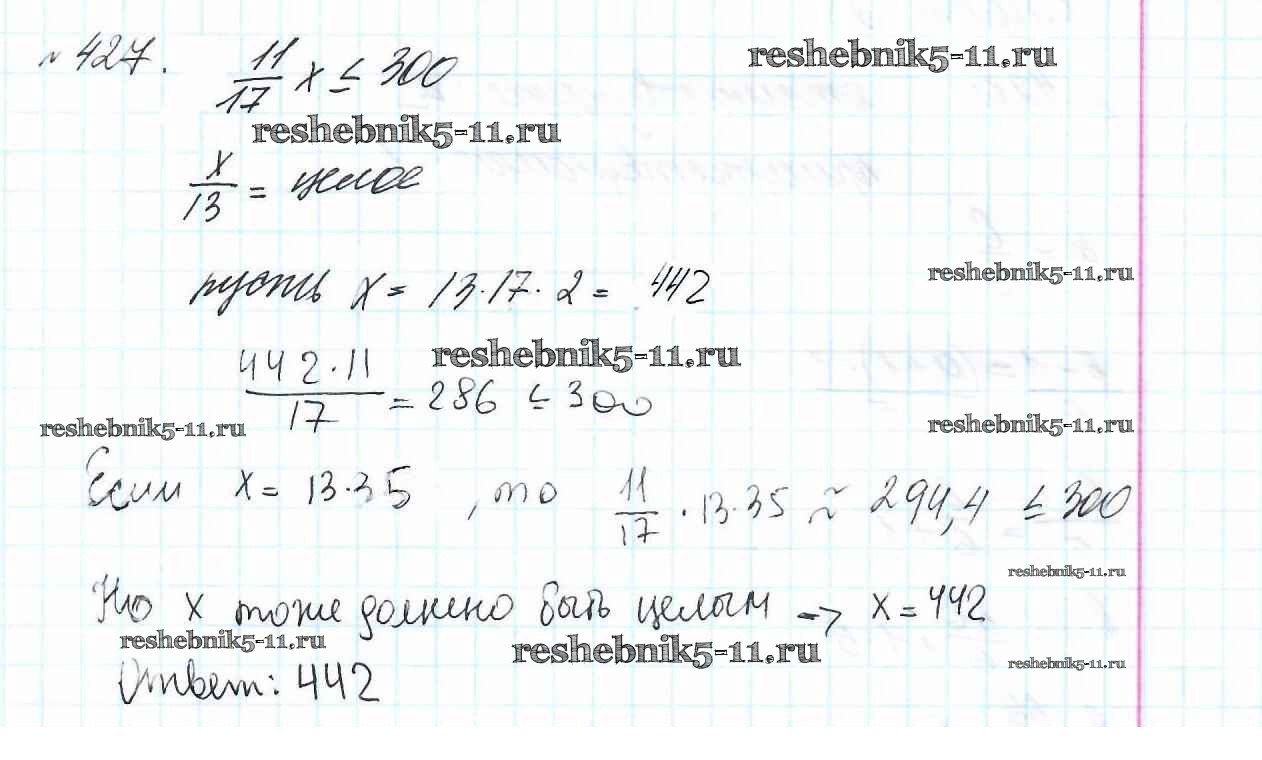 № 427. 11/17 x ≤ 300
reshebnik5-11.ru
reshebnik5-11.ru
x/13 = целое
пусть x = 13·17·2 = 442
reshebnik5-11.ru
reshebnik5-11.ru
442·11/17 = 286 ≤ 300
reshebnik5-11.ru
reshebnik5-11.ru
Если x = 13·35, то 11/17 · 13·35 ≈ 294,4 ≤ 300
reshebnik5-11.ru
Но x тоже должно быть целым → x = 442
reshebnik5-11.ru
reshebnik5-11.ru
reshebnik5-11.ru
Ответ: 442